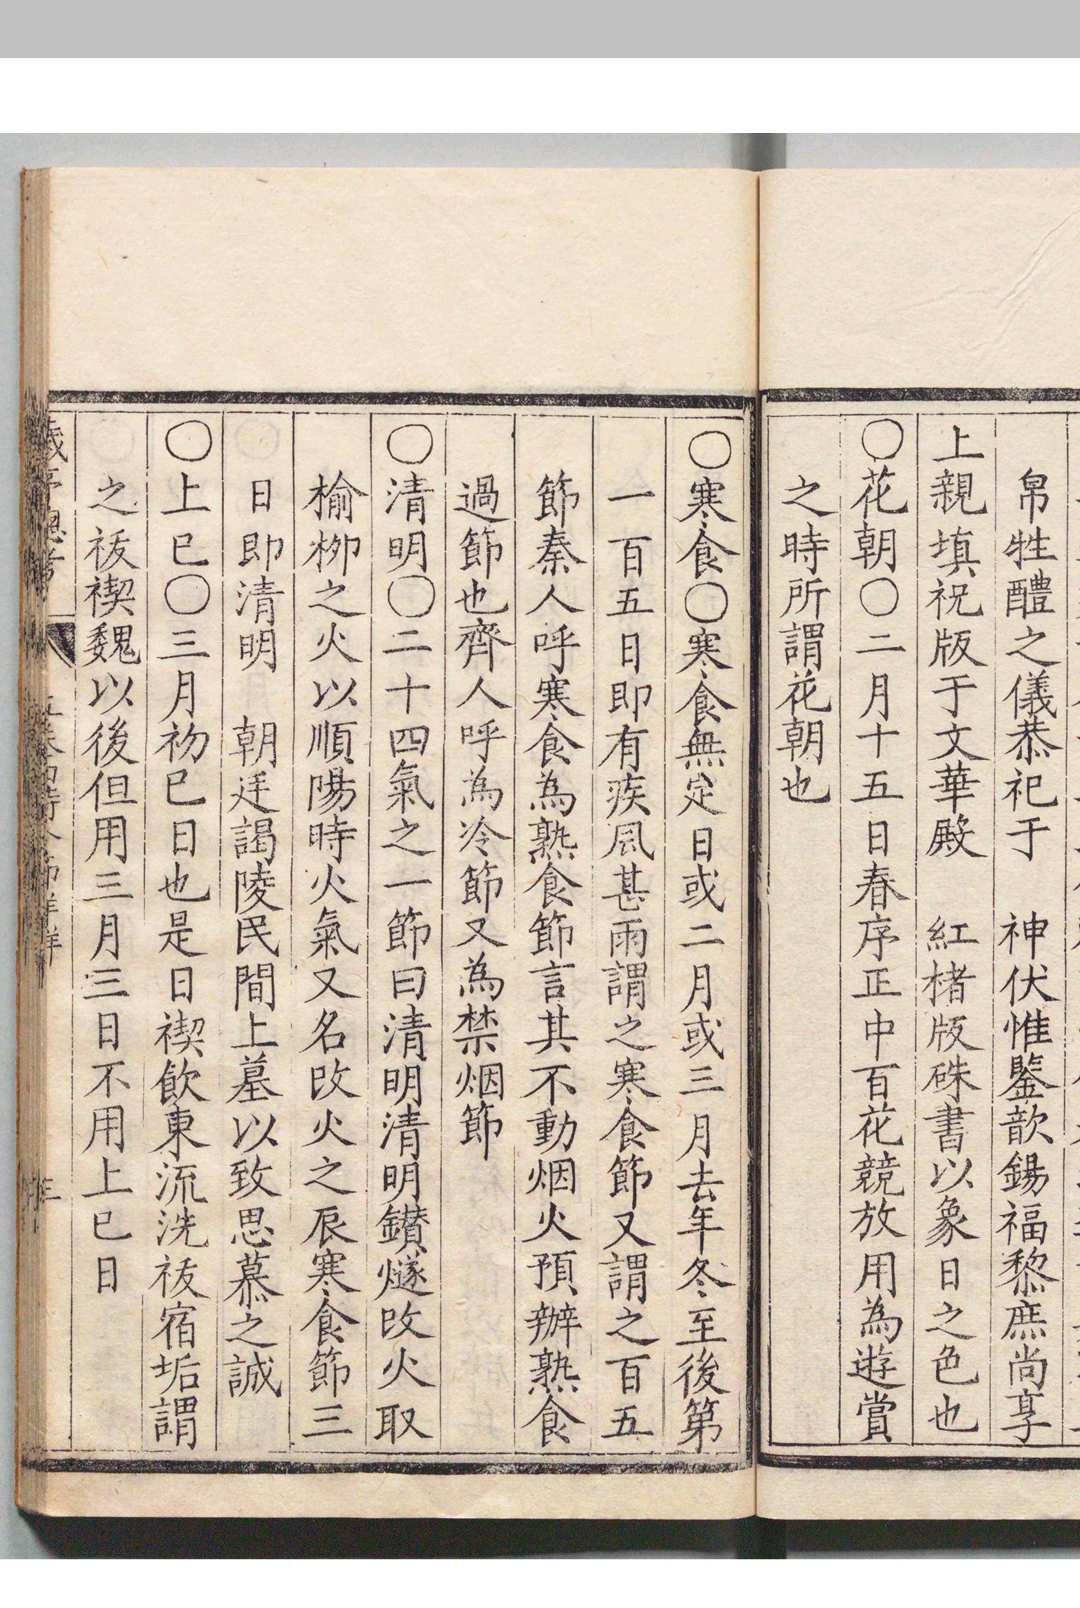 帛牲醴之儀恭祀于　神伏惟鑒歆錫福黎庶尚享
上親填祝版于文華殿　紅楮版硃書以象日之色也
○花朝○二月十五日春序正中百花競放用為遊賞
之時所謂花朝也
○寒食○寒食無定日或二月或三月去年冬至後第
一百五日即有疾風甚雨謂之寒食節又謂之百五
節秦人呼寒食為熟食節言其不動烟火預辦熟食
過節也齊人呼為冷節又為禁烟節
○清明○二十四氣之一節曰清明清明鑚燧改火取
榆栁之火以順陽時火氣又名改火之辰寒食節三
日即清明　朝廷謁陵民間上墓以致思慕之誠
○上巳○三月初巳日也是日禊飲東流洗祓宿垢謂
之祓禊魏以後但用三月三日不用上巳日